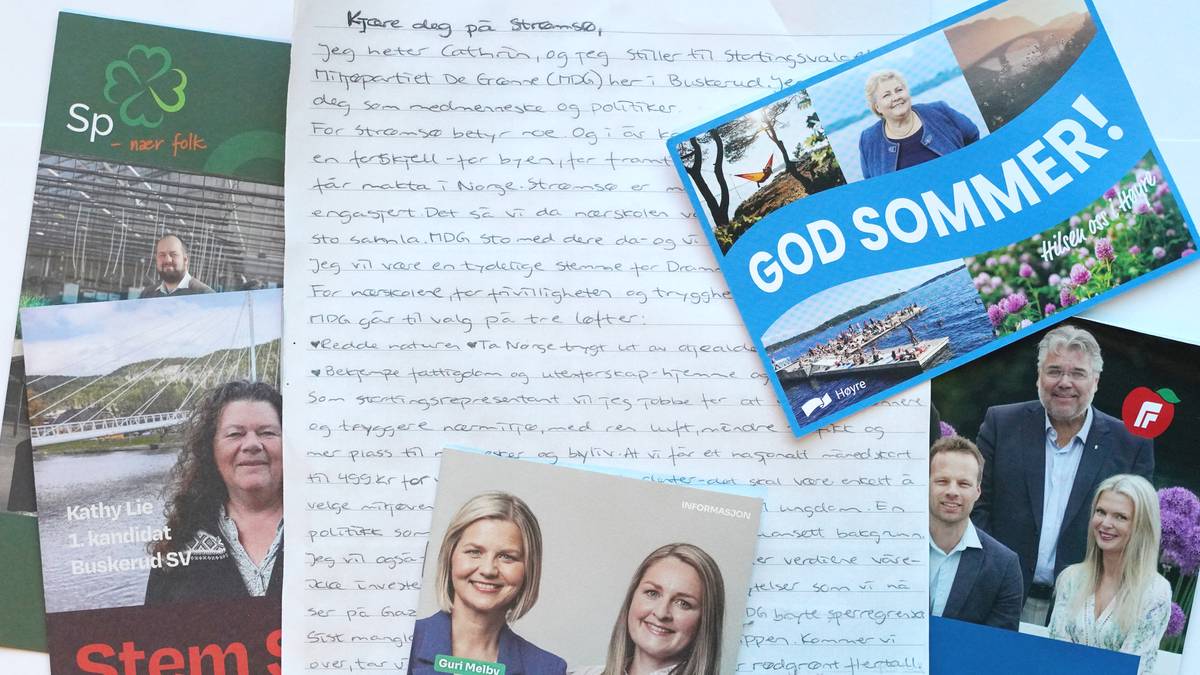 Sp
- nær folk
Kathy Lie
1. kandidat
Buskerud SV
Stem S
Kjære deg på Strømsø,
Jeg heter Cathrin, og jeg stiller til Stortingsvalget
Miljøpartiet De Grønne (MDG) her i Buskerud. Je
deg som medmenneske og politiker.
For Strømsø betyr noe. Og i år k
en forskjell - for byen, for framt
får makta i Norge. Strømsø er m
engasjert. Det så vi da nærskolen va
sto samla. MDG sto med dere da - og vi
Jeg vil være en tydelige stemme for Dram
For nærskolene, for frivilligheten og tryggh
MDG går til valg på tre løfter:
♥Redde naturen ♥Ta Norge trygt ut av
♥Bekjempe fattigdom og utenforskap - hjemme og
Som stortingsrepresentant vil jeg jobbe for at
og tryggere nærmiljø, med ren luft, mindre og
mer plass til og byliv. At vi får et nasjonalt månedskort
til 499 kr for det skal være enkelt å
velge miljøven ungdom. En
politikk som bakgrunn.
Jeg vil også er verdiene våre -
ikke investe som vi nå
ser på Gaz DG bryte sperregrensa
Sist mangl ppen. Kommer vi
over, tar vi rødgrønt flertall.
GOD SOMMER!
Hilsen oss i Høyre
Høyre
INFORMASJON
Guri Melby
F